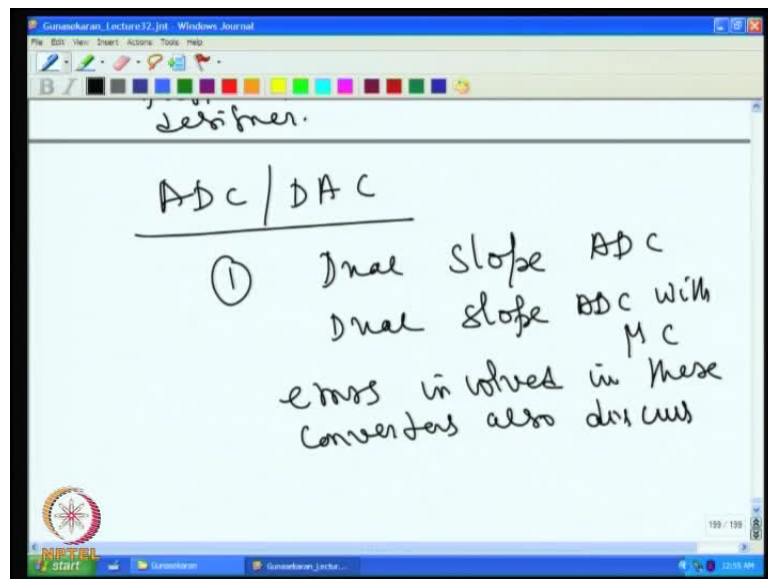 Gunasekaran_Lecture32.jnt - Windows Journal
File Edit View Insert Actions Tools Help
B I
designer.
ADC / DAC
① Dual slope ADC
Dual slope ADC with
μC
errors involved in these
converters also discuss
199 / 199
NPTEL
start
Gunasekaran
Gunasekaran_Lectur...
12:55 AM